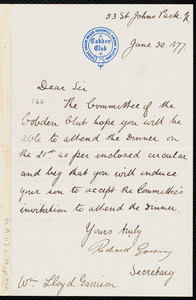 53 St Johns Park
Cobden Club
June 30. 1877.
Dear Sir
166
The Committee of the
Cobden Club hope you will be
able to attend the Dinner on
the 21st as per enclosed circular
and beg that you will induce
your son to accept the Committee's
invitation to attend the Dinner.
Yours truly
Richard Gowing
Secretary
Wm Lloyd Garrison